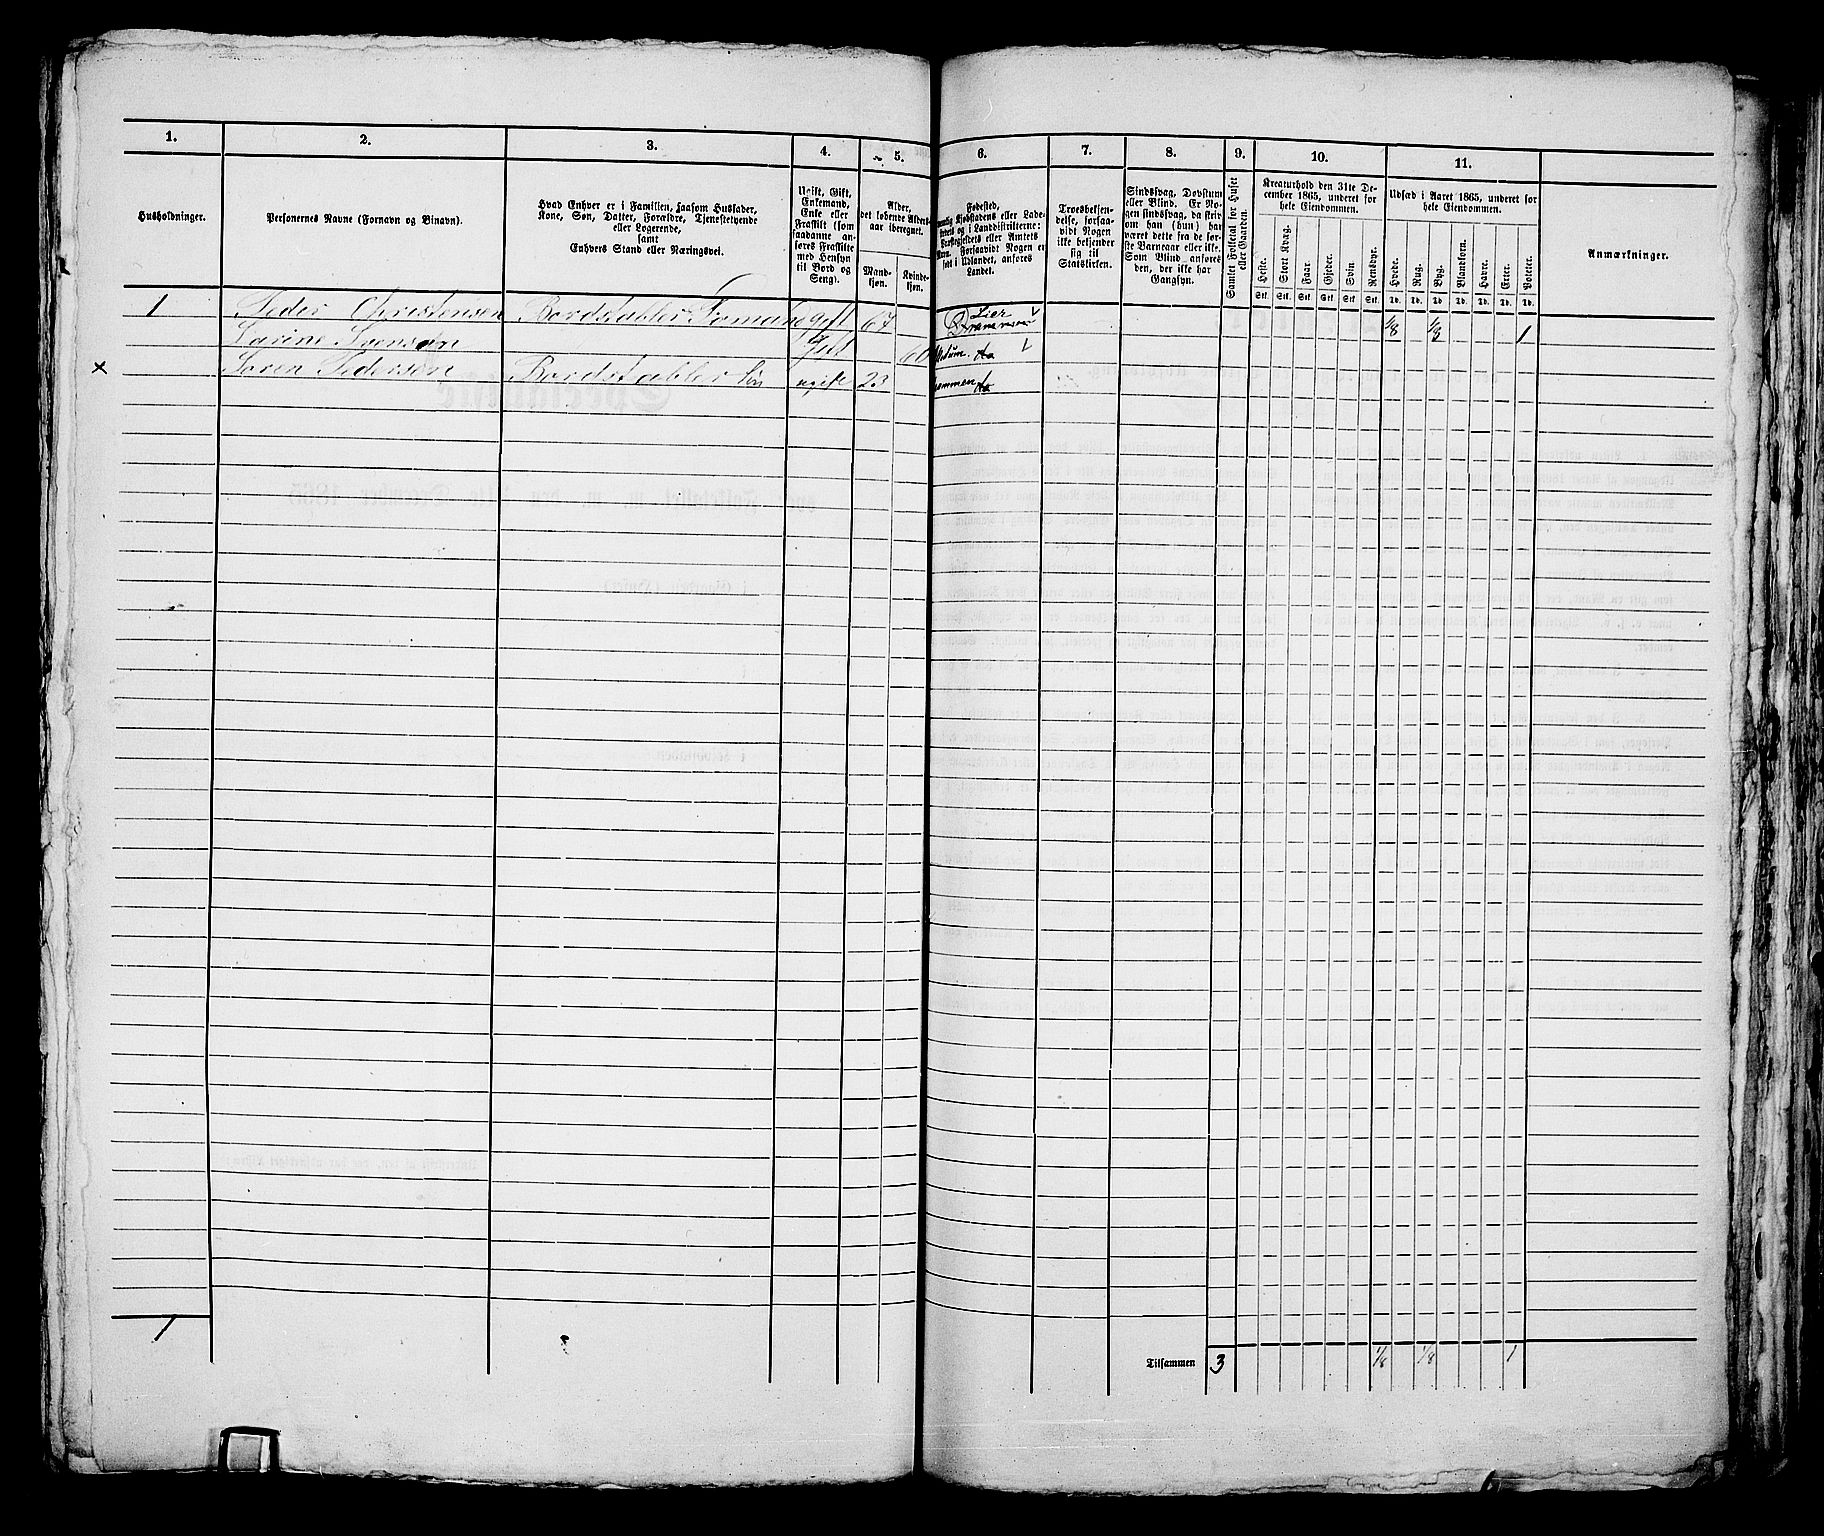 1. 2. 3. 4. 5. 6. 7. 8. 9. 10. 11.
Husholdninger.
Personernes Navne (Fornavn og Binavn).
Hvad Enhver er i Familien, saasom Husfader,
Kone, Søn, Datter, Forældre, Tjenestetyende
eller Logerende,
samt
Enhvers Stand eller Næringsvei.
Ugift, Gift,
Enkemand,
Enke eller
Fraskilt (som
saadanne an-
føres Fraskilte
med Hensyn
til Bord og
Seng).
Alder,
det løbende Alders-
aar iberegnet.
Mand-
kjøn.
Kvinde-
kjøn.
Fødested,
Kjøbstadens eller Lade-
stedets og i Landdistrikterne:
Præstegjeldets eller Amtets
Navn. Forsaavidt Nogen er
født i Udlandet, anføres
Landet.
Troesbekjen-
delse, forsaa-
vidt Nogen
ikke bekjender
sig til
Statskirken.
Sindssvag, Døvstum
eller Blind. Er No-
gen sindssvag, da skriv
om han (hun) har
været dette fra de før-
ste Barneaar eller ikke.
Som Blind anføres
den, der ikke har
Gangsyn.
Samlet Folketal for Huset
eller Gaarden.
Kreaturhold den 31te De-
cember 1865, underet for
hele Eiendommen.
Heste.
Stort Kvæg.
Faar.
Gjeder.
Svin.
Rensdyr.
Stk. Stk. Stk. Stk. Stk. Stk.
Udsæd i Aaret 1865, underet for
hele Eiendommen.
Hvede.
Rug.
Byg.
Blandkorn.
Havre.
Erter.
Poteter.
Td. Td. Td. Td. Td. Td. Td.
Anmærkninger.
1 Peder Christensen Bordstabler Formand Gift 67 Lier Drammen 1/8 1/8 1
Sarine Svensøn Gift 60 Modum. do
× Søren Pedersen Bordstabler ugift 23 Drammen do
1
Tilsammen 3 1/8 1/8 1